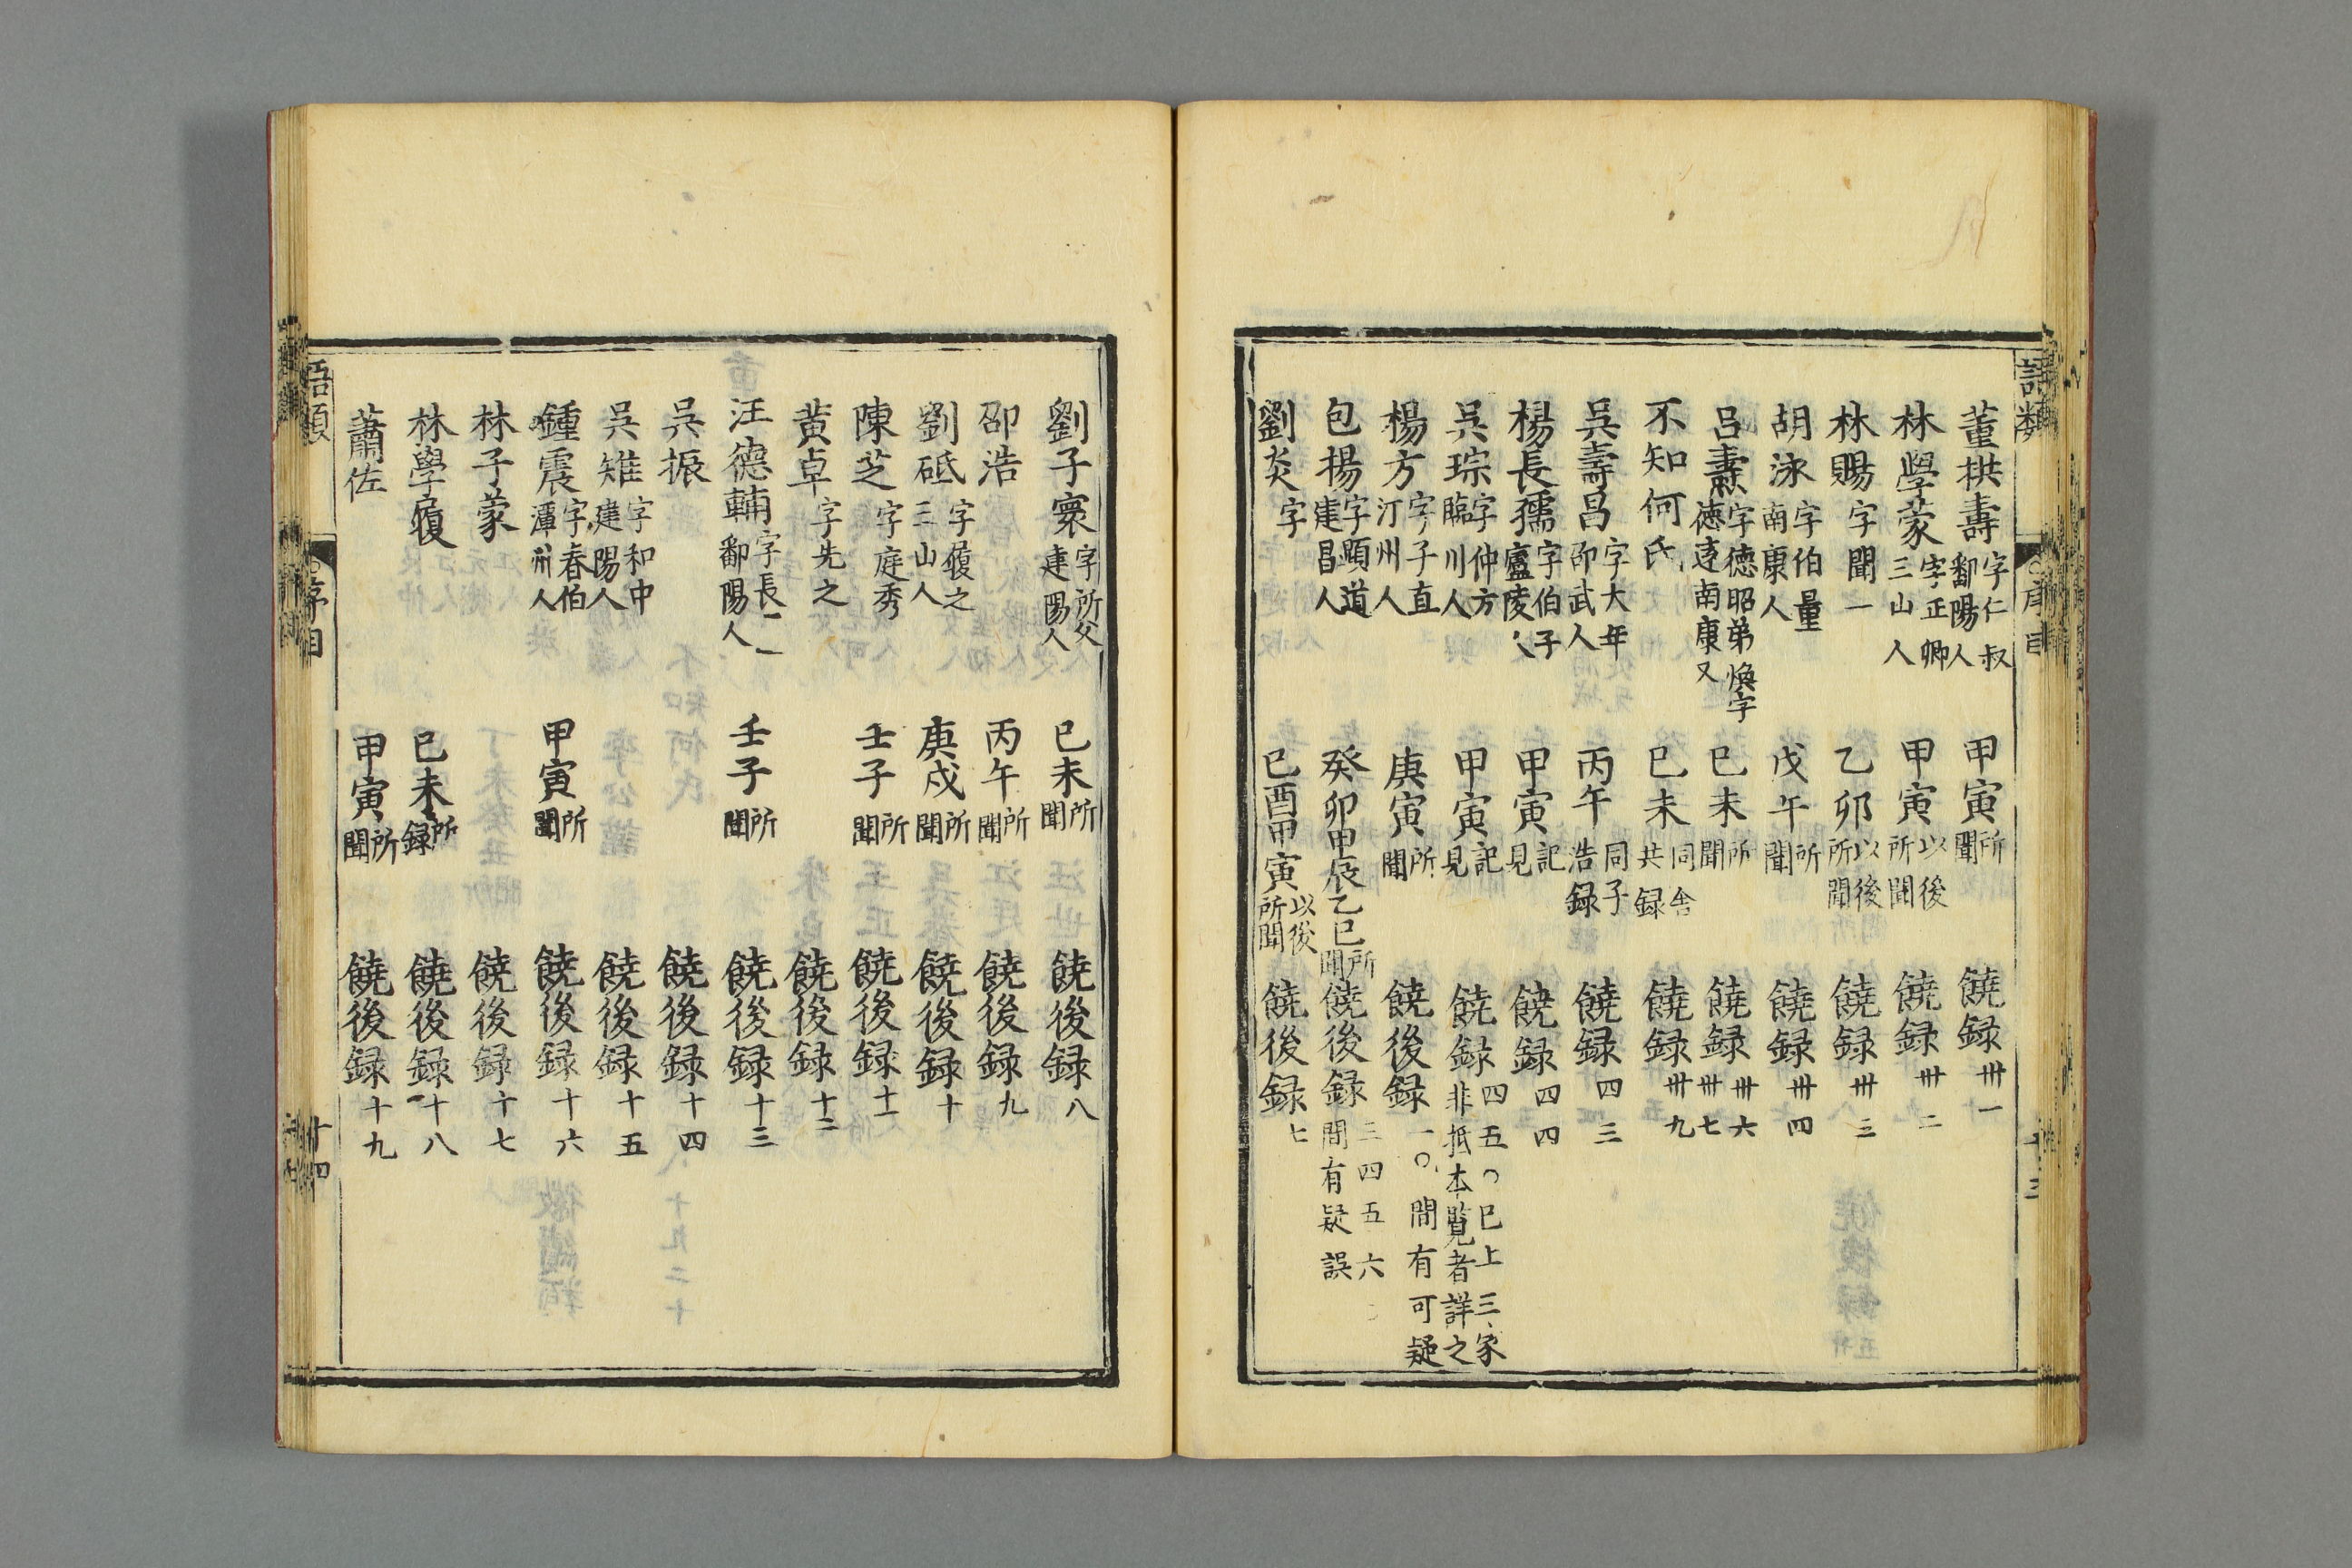 語類 序目
董拱壽 字仁叔鄱陽人 甲寅所聞 饒録卅一
林學蒙 字正卿三山人 甲寅以後所聞 饒録卅二
林賜 字聞一 乙卯以後所聞 饒録卅三
胡泳 字伯量南康人 戊午所聞 饒録卅四
呂燾 字德昭弟煥字德遠南康又 己未所聞 饒録卅六卅七
不知何氏 己未同舍共録 饒録卅九
吳壽昌 字大年邵武人 丙午同子浩録 饒録四三
楊長孺 字伯子廬陵人 甲寅記見 饒録四四
吳琮 字仲方臨川人 甲寅記見 饒録四五○已上三家非抵本覧者詳之
楊方 字子直汀州人 庚寅所聞 饒後録一○間有可疑
包揚 字顯道建昌人 癸卯甲辰乙巳所聞 饒後録三四五六間有疑誤
劉炎 字 己酉甲寅以後所聞 饒後録七
劉子寰 字所父建陽人 己未所聞 饒後録八
邵浩 丙午所聞 饒後録九
劉砥 字履之三山人 庚戌所聞 饒後録十
陳芝 字庭秀 壬子所聞 饒後録十一
黃卓 字先之 饒後録十二
汪德輔 字長一鄱陽人 壬子所聞 饒後録十三
吳振 饒後録十四
吳雉 字和中建陽人 饒後録十五
鍾震 字春伯潭州人 甲寅所聞 饒後録十六
林子蒙 饒後録十七
林學履 己未所録 饒後録十八
蕭佐 甲寅所聞 饒後録十九
語類 序目 十四